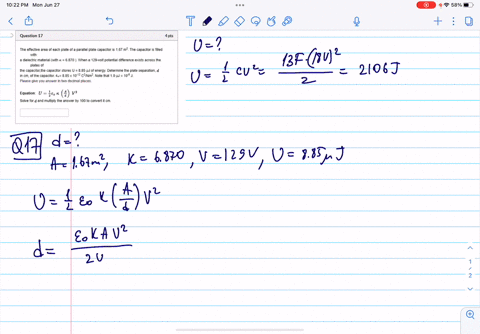 10:22 PM Mon Jun 27
58%
Question 17
4 pts
The effective area of each plate of a parallel plate capacitor is 1.67 m². The capacitor is filled with
a dielectric material (with κ = 6.870 ). When a 129-volt potential difference exists across the plates of
the capacitor, the capacitor stores U = 8.85 μJ of energy. Determine the plate separation, d
in cm, of the capacitor.
Please give your answer to two decimal places.
Equation: U = ½ε₀ κ (A/d) V²
Solve for d and multiply the answer by 100 to convert it cm.
U = ?
U = 1/2 CV² = 13F·(18V)²/2 = 2106 J
Q17 d = ?
A = 1.67m², K = 6.870, V = 129V, U = 8.85 μJ
U = 1/2 ε₀ K (A/d) V²
d = ε₀ K A V² / 2U
1
2